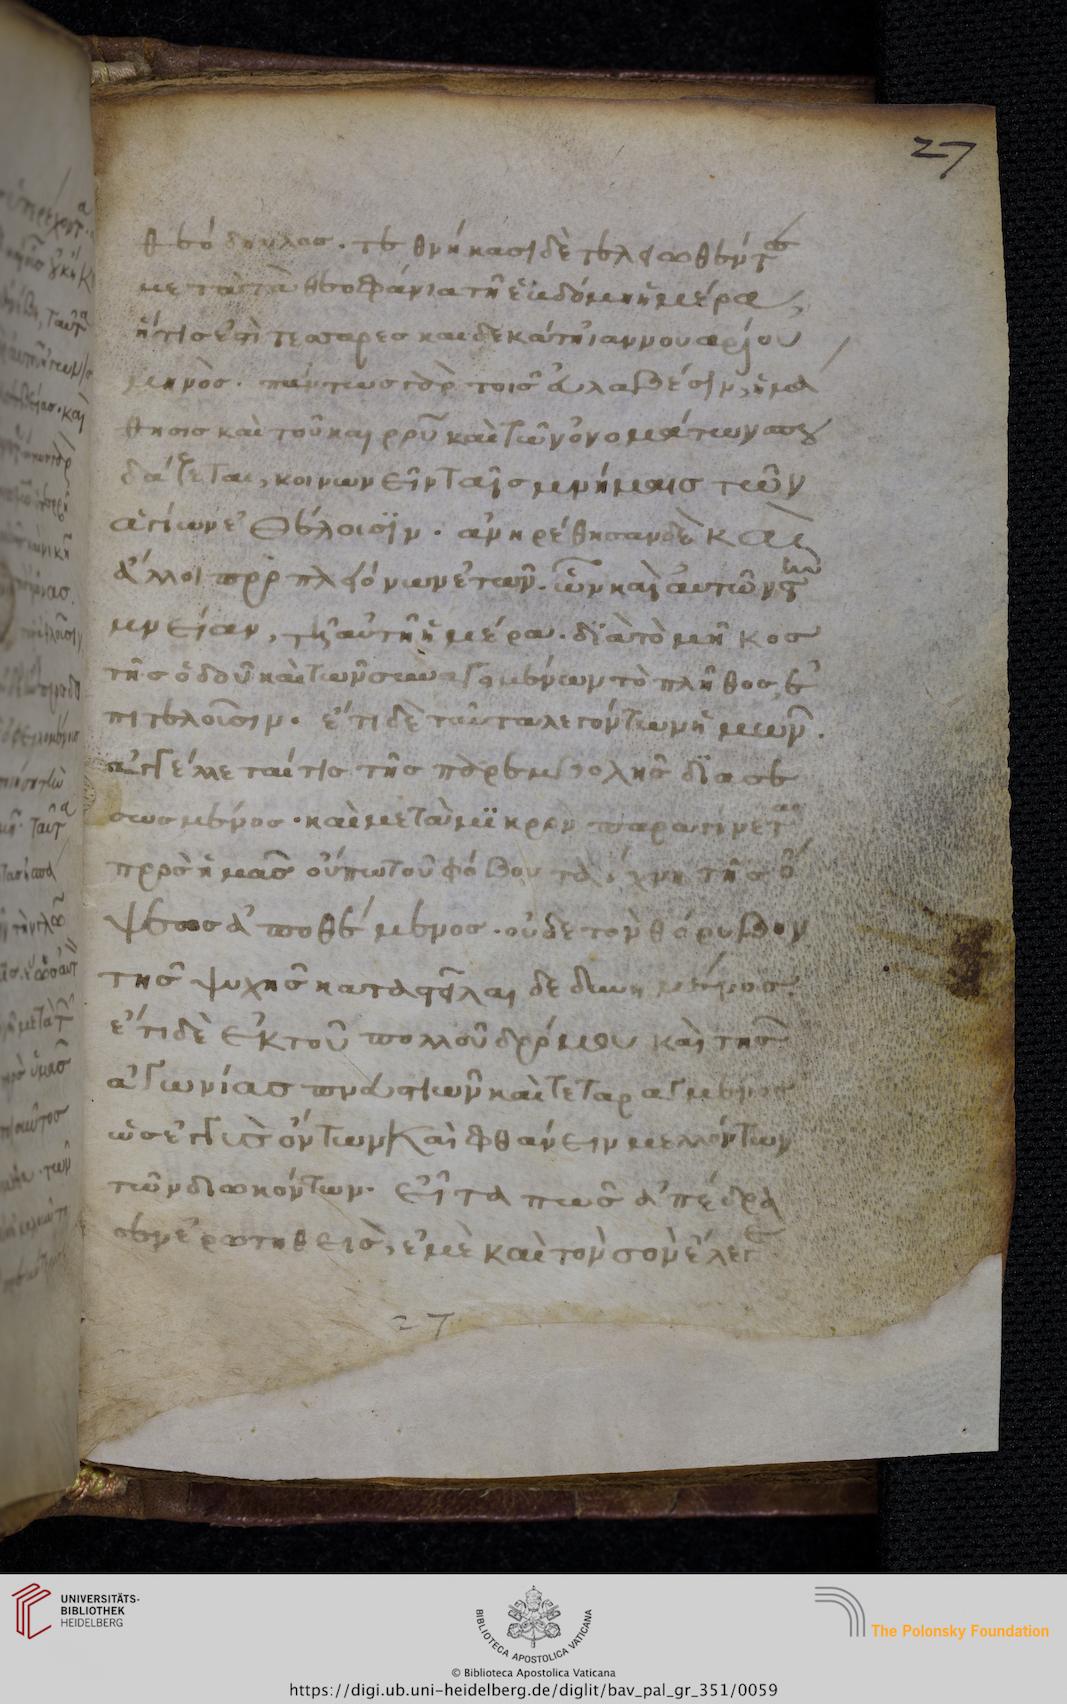 27
θεόδουλος. τεθνήκασι δὲ τελειωθέντες
μετὰ τὰ θεοφάνια τῇ ἑβδόμῃ ἡμέρα,
ἥτις ἐστὶ τεσσαρεσκαιδεκάτη ἰαννουαρίου
μηνὸς. πάντως γὰρ τοῖς εὐλαβέσιν, ἡ μά
θησις καὶ τοῦ καιροῦ καὶ τῶν ὀνομάτων σπου
δάζεται, κοινωνεῖν ταῖς μνήμαις τῶν
ἁγίων ἐθέλουσιν. ἀνηρέθησαν δὲ καὶ
ἄλλοι πρὸ πλειόνων ἐτῶν. ὧν καὶ αὐτῶν τὴν
μνείαν, τῇ αὐτῇ ἡμέρα. διὰ τὸ μῆκος
τῆς ὁδοῦ καὶ τῶν συναγομένων τὸ πλῆθος ἐ
πιτελοῦσιν. ἔτι δὲ ταῦτα λεγόντων ἡμῶν.
ἀγγέλλεταί τις τῆς παρεμβολῆς διασε
σωσμένος. καὶ μετὰ μικρὸν παραγίνεται
πρὸς ἡμᾶς οὔπω τοῦ φόβου τὰ ἴχνη τῆς ὄ
ψεως ἀποθέμενος. οὐδὲ τὸν θόρυβον
τῆς ψυχῆς καταστεῖλαι δεδυνημένος.
ἔτι δὲ ἐκ τοῦ πολλοῦ δρόμου καὶ τῆς
ἀγωνίας πνευστιῶν καὶ τεταραγμένος
ὡς ἐγγὺς ὄντων καὶ φθάνειν μελλόντων
τῶν διωκόντων. εἶτα πῶς ἀπέδρα
σεν ἐρωτηθεὶς, ἐμὲ καὶ τὸν σὸν ἔλεγε
27
UNIVERSITÄTS-
BIBLIOTHEK
HEIDELBERG
BIBLIOTECA APOSTOLICA VATICANA
The Polonsky Foundation
© Biblioteca Apostolica Vaticana
https://digi.ub.uni-heidelberg.de/diglit/bav_pal_gr_351/0059